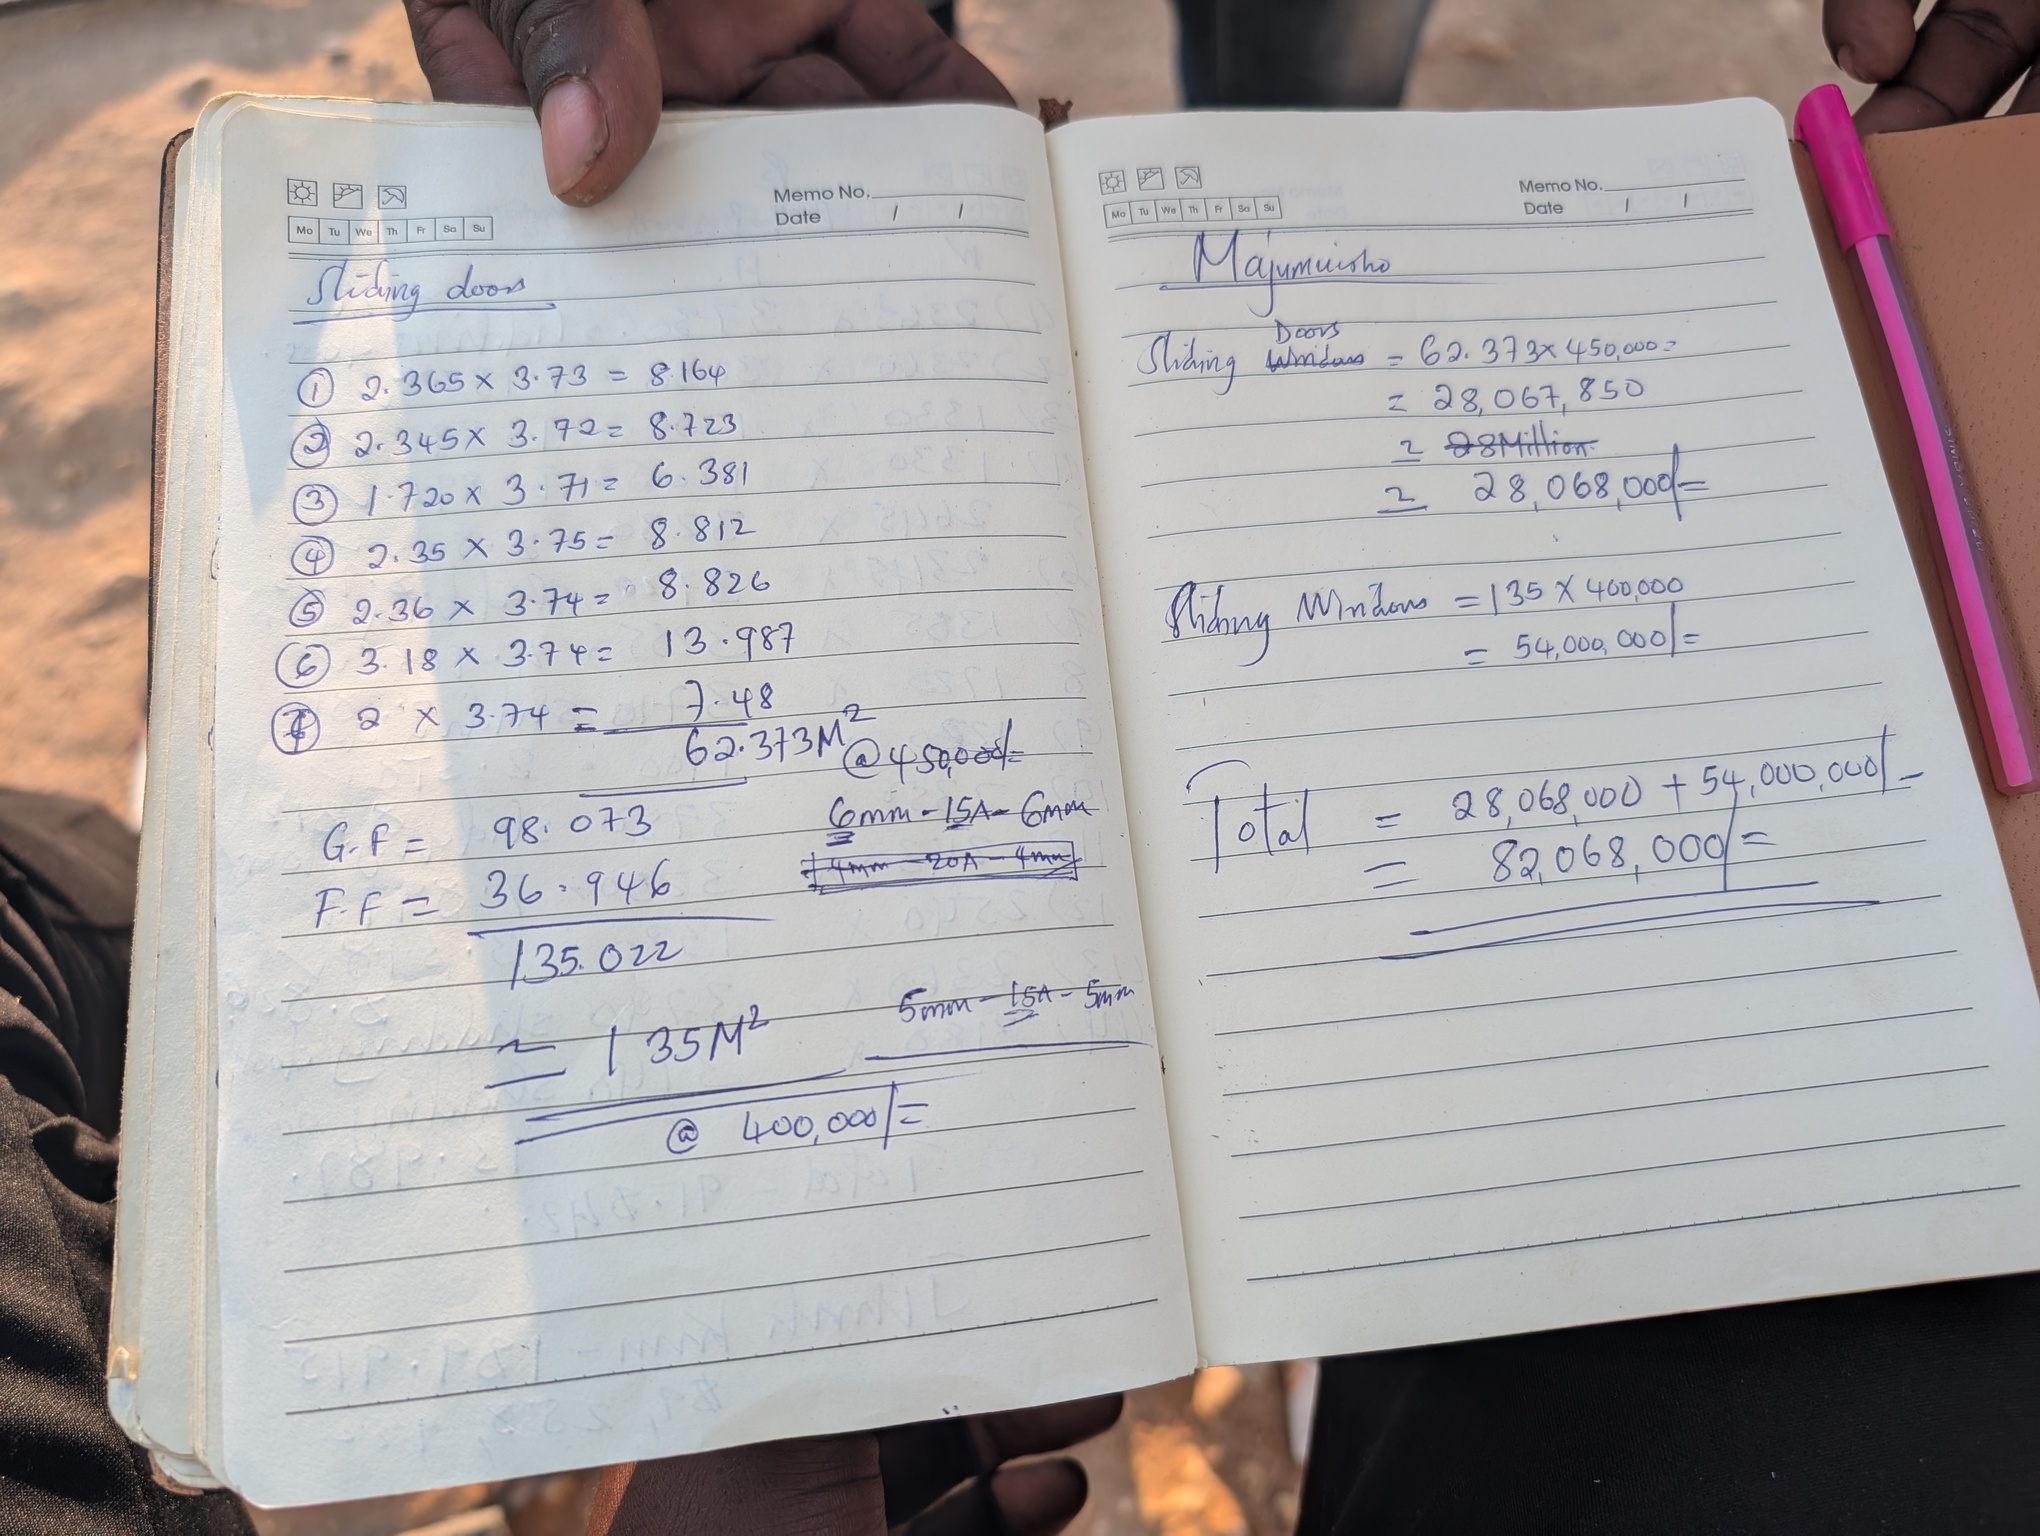 Memo No.
Date / /
Mo Tu We Th Fr Sa Su
Sliding doors
① 2.365 x 3.73 = 8.164
② 2.345 x 3.72 = 8.723
③ 1.720 x 3.71 = 6.381
④ 2.35 x 3.75 = 8.812
⑤ 2.36 x 3.74 = 8.826
⑥ 3.18 x 3.74 = 13.987
⑦ 2 x 3.74 = 7.48
62.373M²
@ 450,000/=
6mm - 15A - 6mm
4mm - 20A - 4mm
G.F = 98.073
F.F = 36.946
135.022
5mm - 15A - 5mm
≈ 135M²
@ 400,000/=
Memo No.
Date / /
Mo Tu We Th Fr Sa Su
Majumuisho
Sliding Windows Doors = 62.373 x 450,000=
= 28,067,850
≈ 28 Million
≈ 28,068,000/=
Sliding Windows = 135 x 400,000
= 54,000,000/=
Total = 28,068,000 + 54,000,000/=
= 82,068,000/=